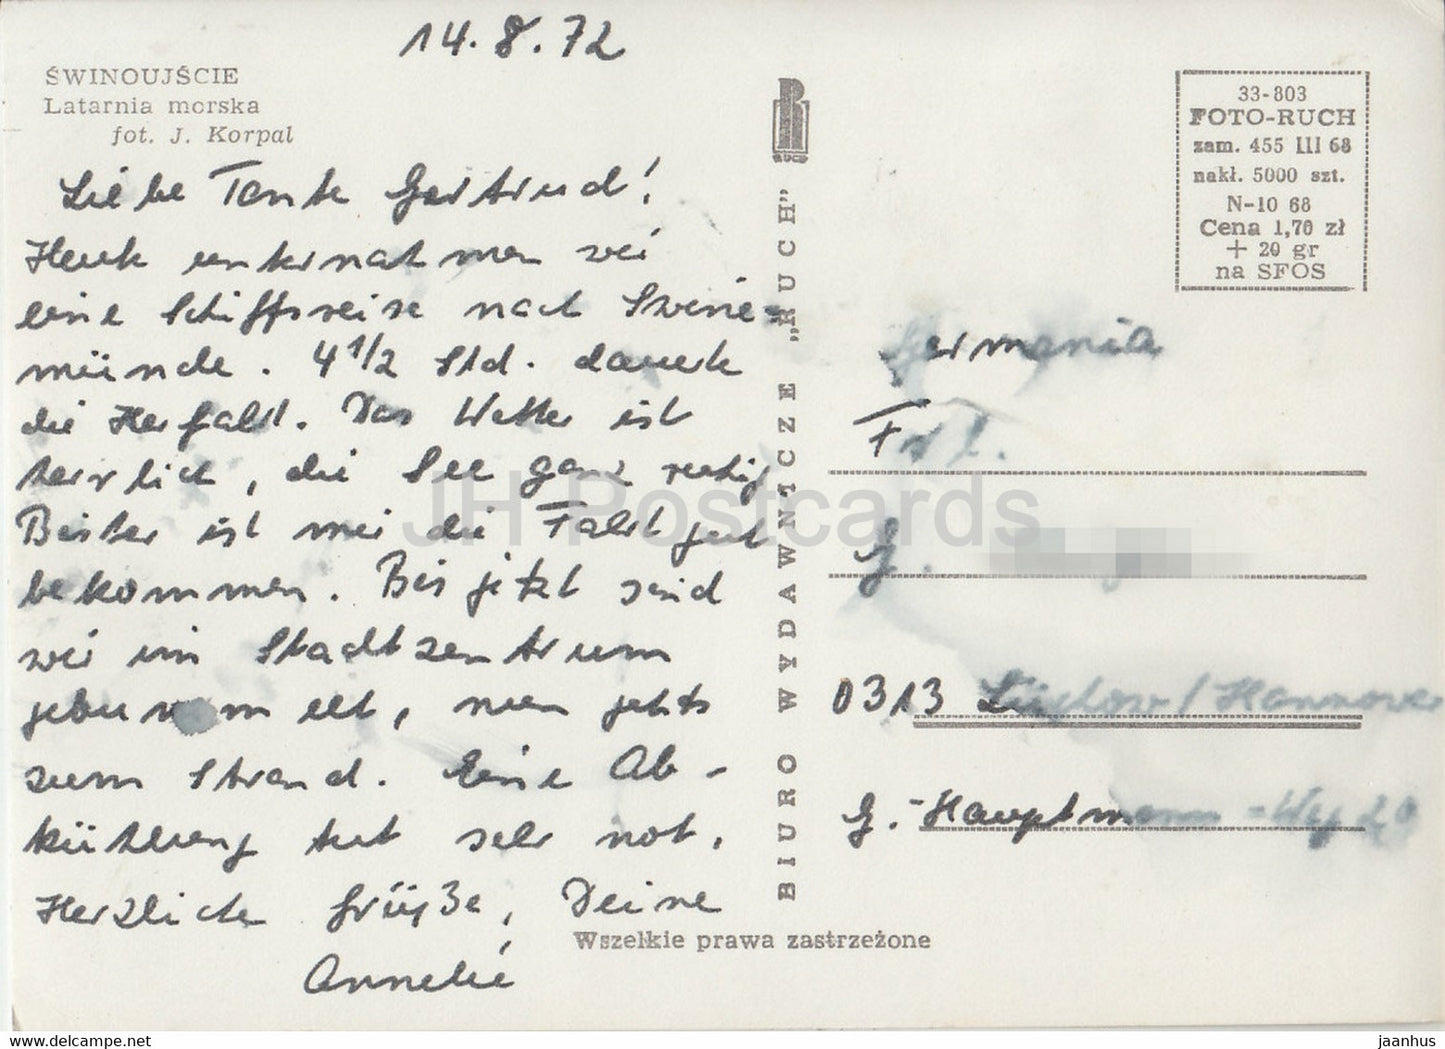 14.8.72
ŚWINOUJŚCIE
Latarnia morska
fot. J. Korpal
Liebe Tante Gertrud!
Heute unternahmen wir
eine Schiffsreise nach Swine-
münde. 4 1/2 Std. dauerte
die Herfahrt. Das Wetter ist
herrlich, die See ganz ruhig
Bisher ist mir die Fahrt gut
bekommen. Bis jetzt sind
wir im Stadtzentrum
gebummelt, nun geht's
zum Strand. Eine Ab-
kühlung tut sehr not.
Herzliche Grüße, Deine
Annelie
RUCH
BIURO WYDAWNICZE „RUCH"
33-803
FOTO-RUCH
zam. 455 III 68
nakł. 5000 szt.
N-10 68
Cena 1,70 zł
+ 20 gr
na SFOS
Germania
Frl.
G.
0313 Lüchow/Hannover
G.-Hauptmann-Weg
Wszelkie prawa zastrzeżone
JH Postcards
www.delcampe.net
jaanhus